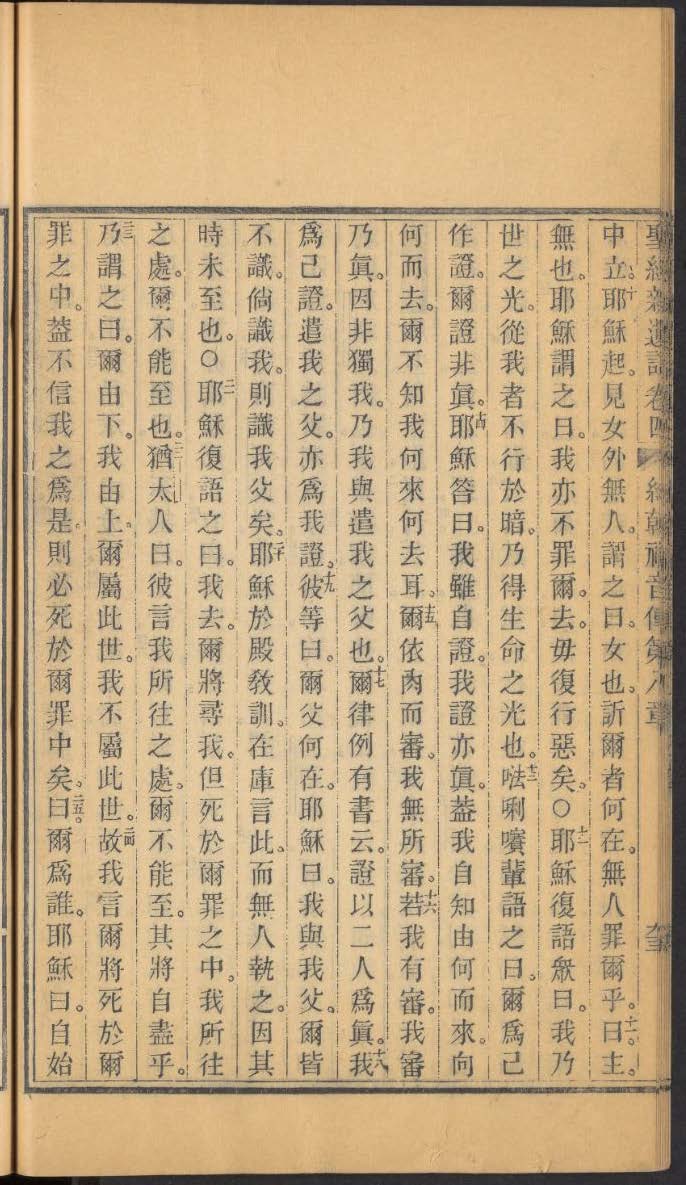 聖經新遺詔卷四 約翰福音傳第八章
中立。十耶穌起。見女外無人。謂之曰。女也。訴爾者何在。無人罪爾乎。十一曰。主。
無也。耶穌謂之曰。我亦不罪爾。去。毋復行惡矣。○十二耶穌復語眾曰。我乃
世之光。從我者不行於暗。乃得生命之光也。十三㕸唎㘔輩語之曰。爾為己
作證。爾證非眞。十四耶穌答曰。我雖自證。我證亦眞。葢我自知由何而來。向
何而去。爾不知我何來何去耳。十五爾依肉而審。我無所審。十六若我有審。我審
乃眞。因非獨我。乃我與遣我之父也。十七爾律例有書云。證以二人為眞。十八我
為己證。遣我之父。亦為我證。十九彼等曰。爾父何在。耶穌曰。我與我父。爾皆
不識。倘識我。則識我父矣。二十耶穌於殿教訓。在庫言此。而無人執之。因其
時未至也。○二一耶穌復語之曰。我去。爾將尋我。但死於爾罪之中。我所往
之處。爾不能至也。二二猶太人曰。彼言我所往之處。爾不能至。其將自盡乎。
二三乃謂之曰。爾由下。我由上。爾屬此世。我不屬此世。二四故我言爾將死於爾
罪之中。葢不信我之為是。則必死於爾罪中矣。二五曰。爾為誰。耶穌曰。自始